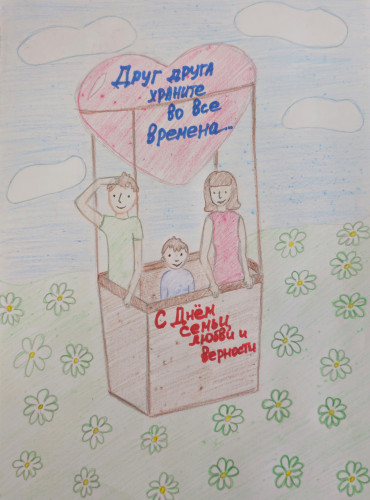 Друг друга
храните
во все
времена...
С Днём
семьи,
любви и
верности